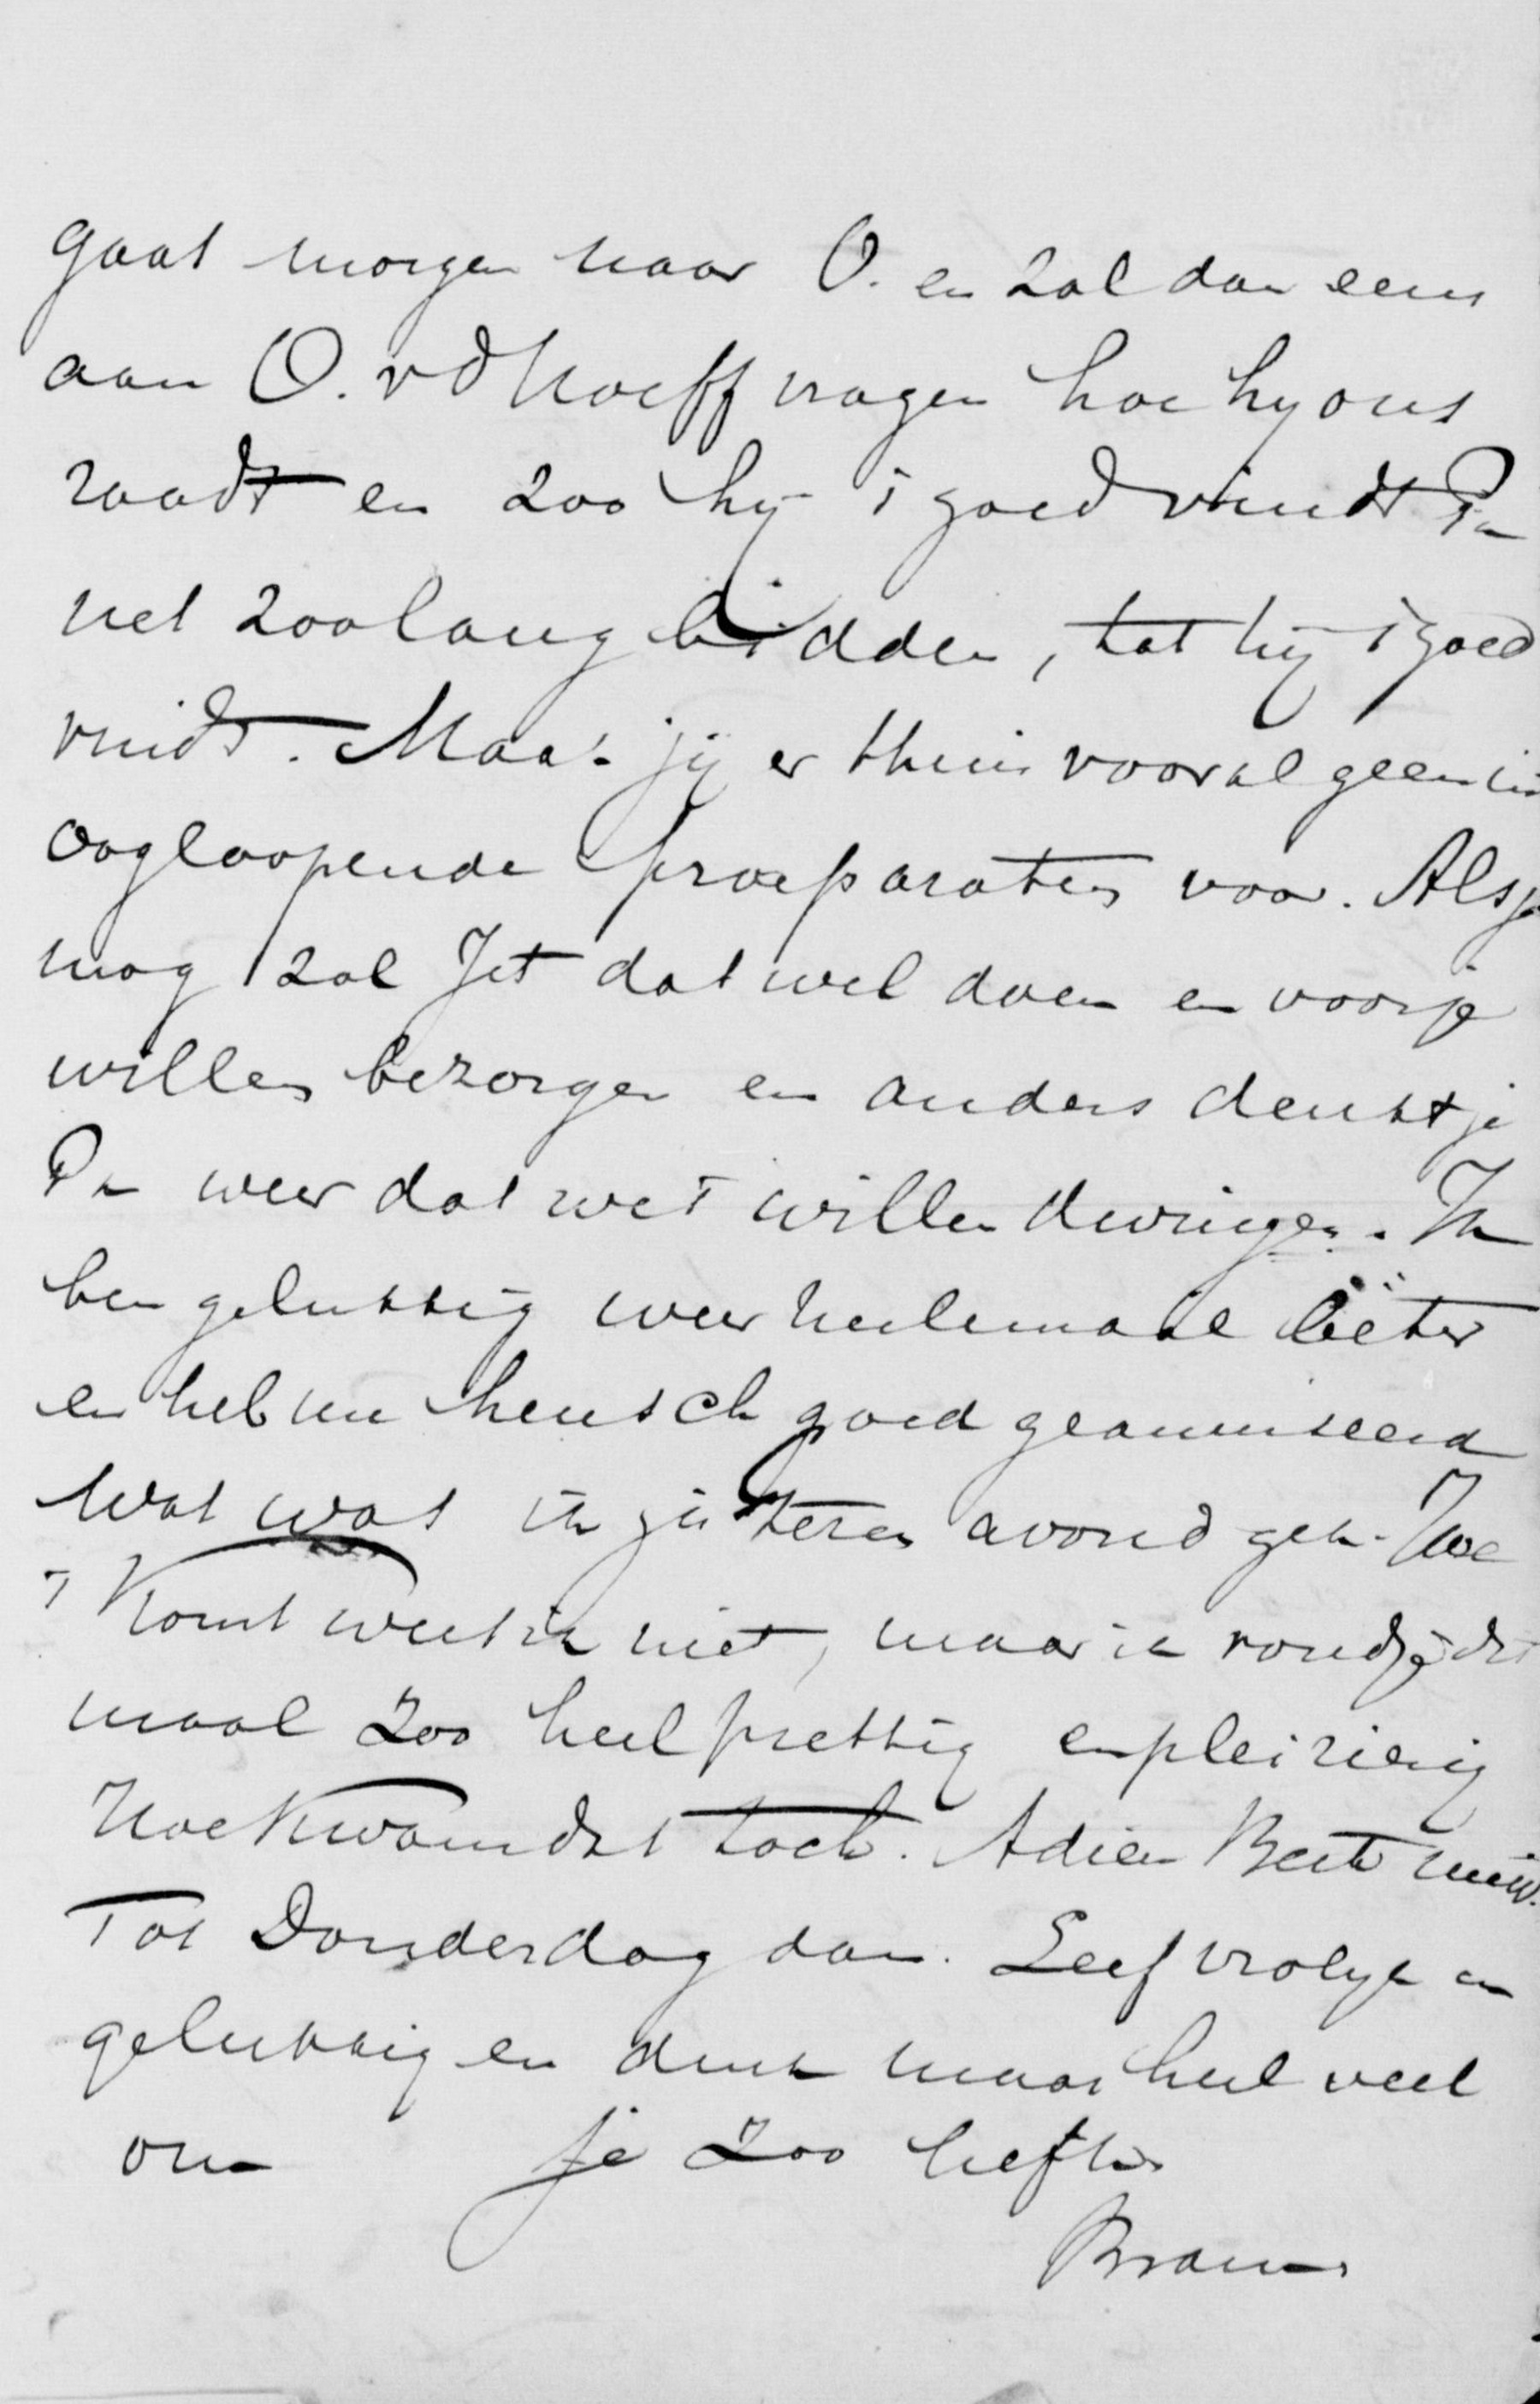 gaat morgen naar O. en zal dan eens
aan O. vd Hoeff vragen hoe hy ons
raadt en zoo hy 't goed vindt Pa
net zoolang bidden, tot hij 't goed
vindt. Maak jij er thuis vooral geen in
oogloopende praeparaties voor. Als je
mag zal Jet dat wel doen en voor je
willen bezorgen en anders denkt je
Pa weer dat we 't willen dwingen. Ik
ben gelukkig weer heelemaal beter
en heb me heusch goed geamuseerd
Wat was ik gisteren avond gek. Hoe
't komt weet ik niet, maar ik vond je dit
maal zoo heel prettig en pleizierig
Hoe kwam dat toch. Adieu Bert
Tot Donderdag dan. Leef vrolyk en
gelukkig en denk maar heel veel
om je zoo liefh.
Bram